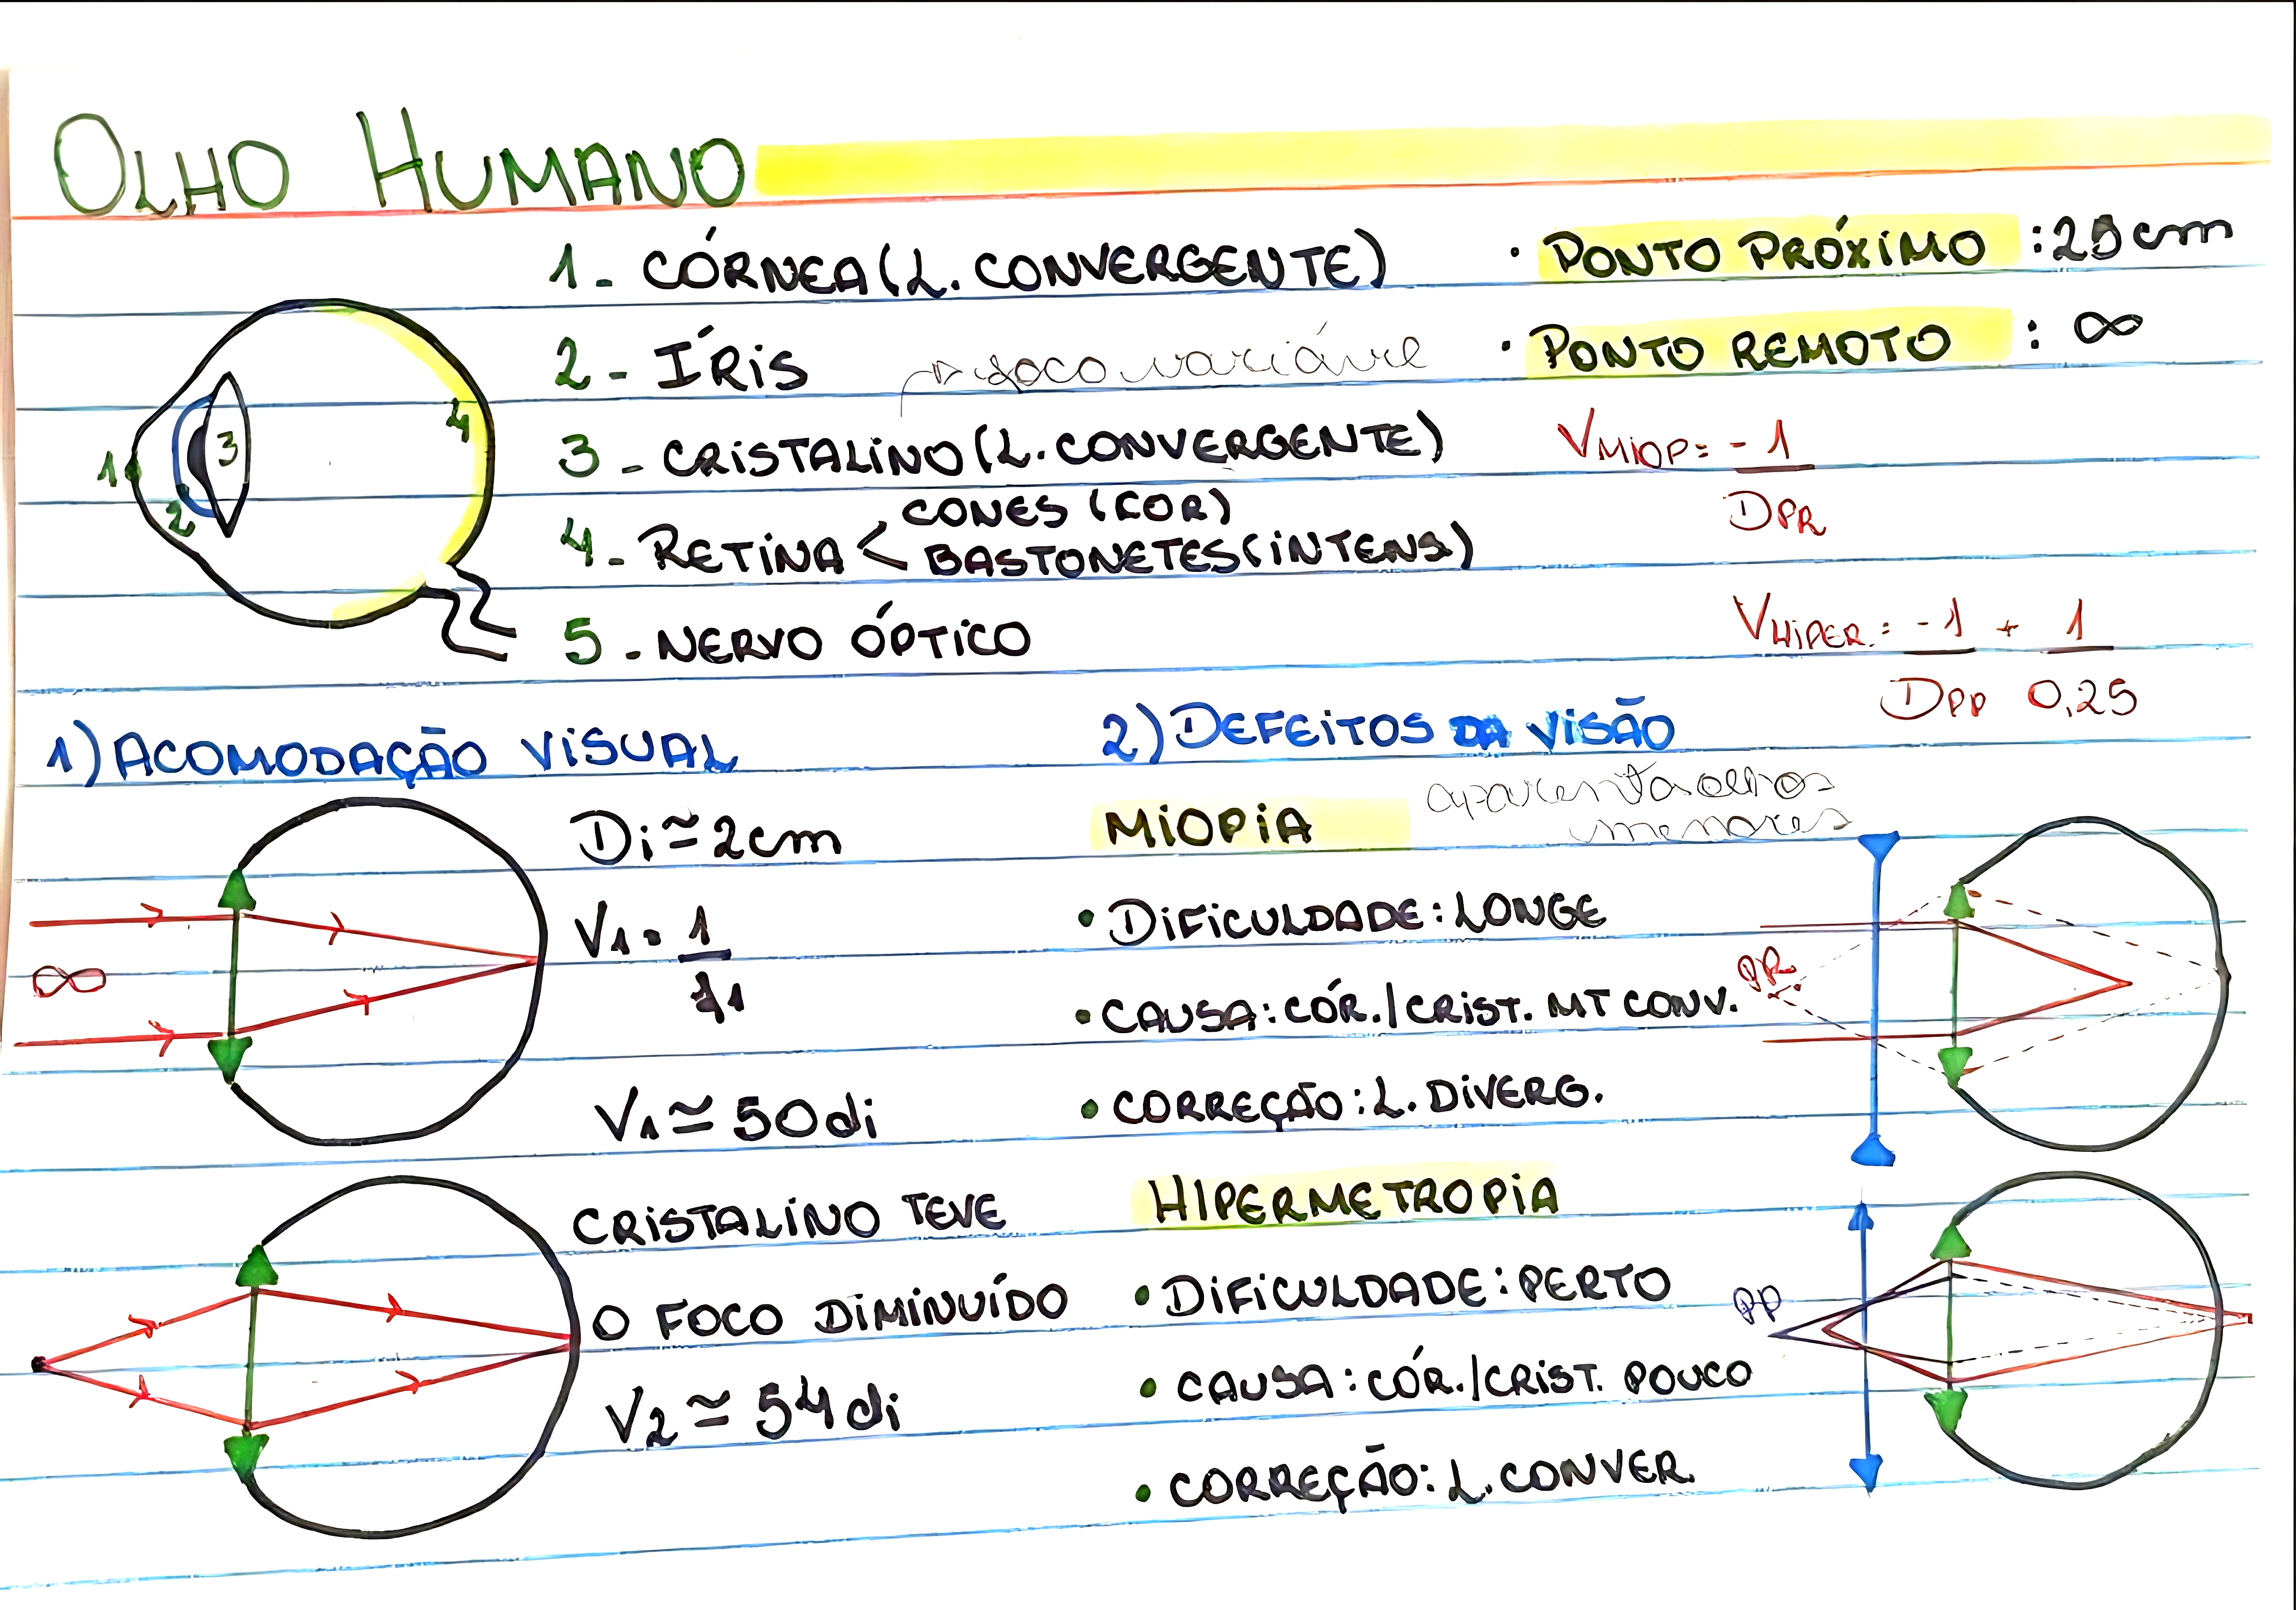 OLHO HUMANO
1 - CÓRNEA (L. CONVERGENTE)
2 - ÍRIS
↱ foco variável
3 - CRISTALINO (L. CONVERGENTE)
4 - RETINA < CONES (COR)
BASTONETES (INTENS)
5 - NERVO ÓPTICO
1
2
3
4
• PONTO PRÓXIMO : 25 cm
• PONTO REMOTO : ∞
VMIOP = -1
DPR
VHIPER. = -1 + 1
DPP 0,25
1) ACOMODAÇÃO VISUAL
∞
Di ≃ 2cm
V1 = 1
f1
V1 ≃ 50 di
CRISTALINO TEVE
O FOCO DIMINUÍDO
V2 ≃ 54 di
2) DEFEITOS DA VISÃO
MIOPIA
aparenta olhos
menores
• DIFICULDADE: LONGE
• CAUSA: CÓR./CRIST. MT CONV.
• CORREÇÃO: L. DIVERG.
PR
HIPERMETROPIA
• DIFICULDADE: PERTO
• CAUSA: CÓR./CRIST. POUCO
• CORREÇÃO: L. CONVER.
PP